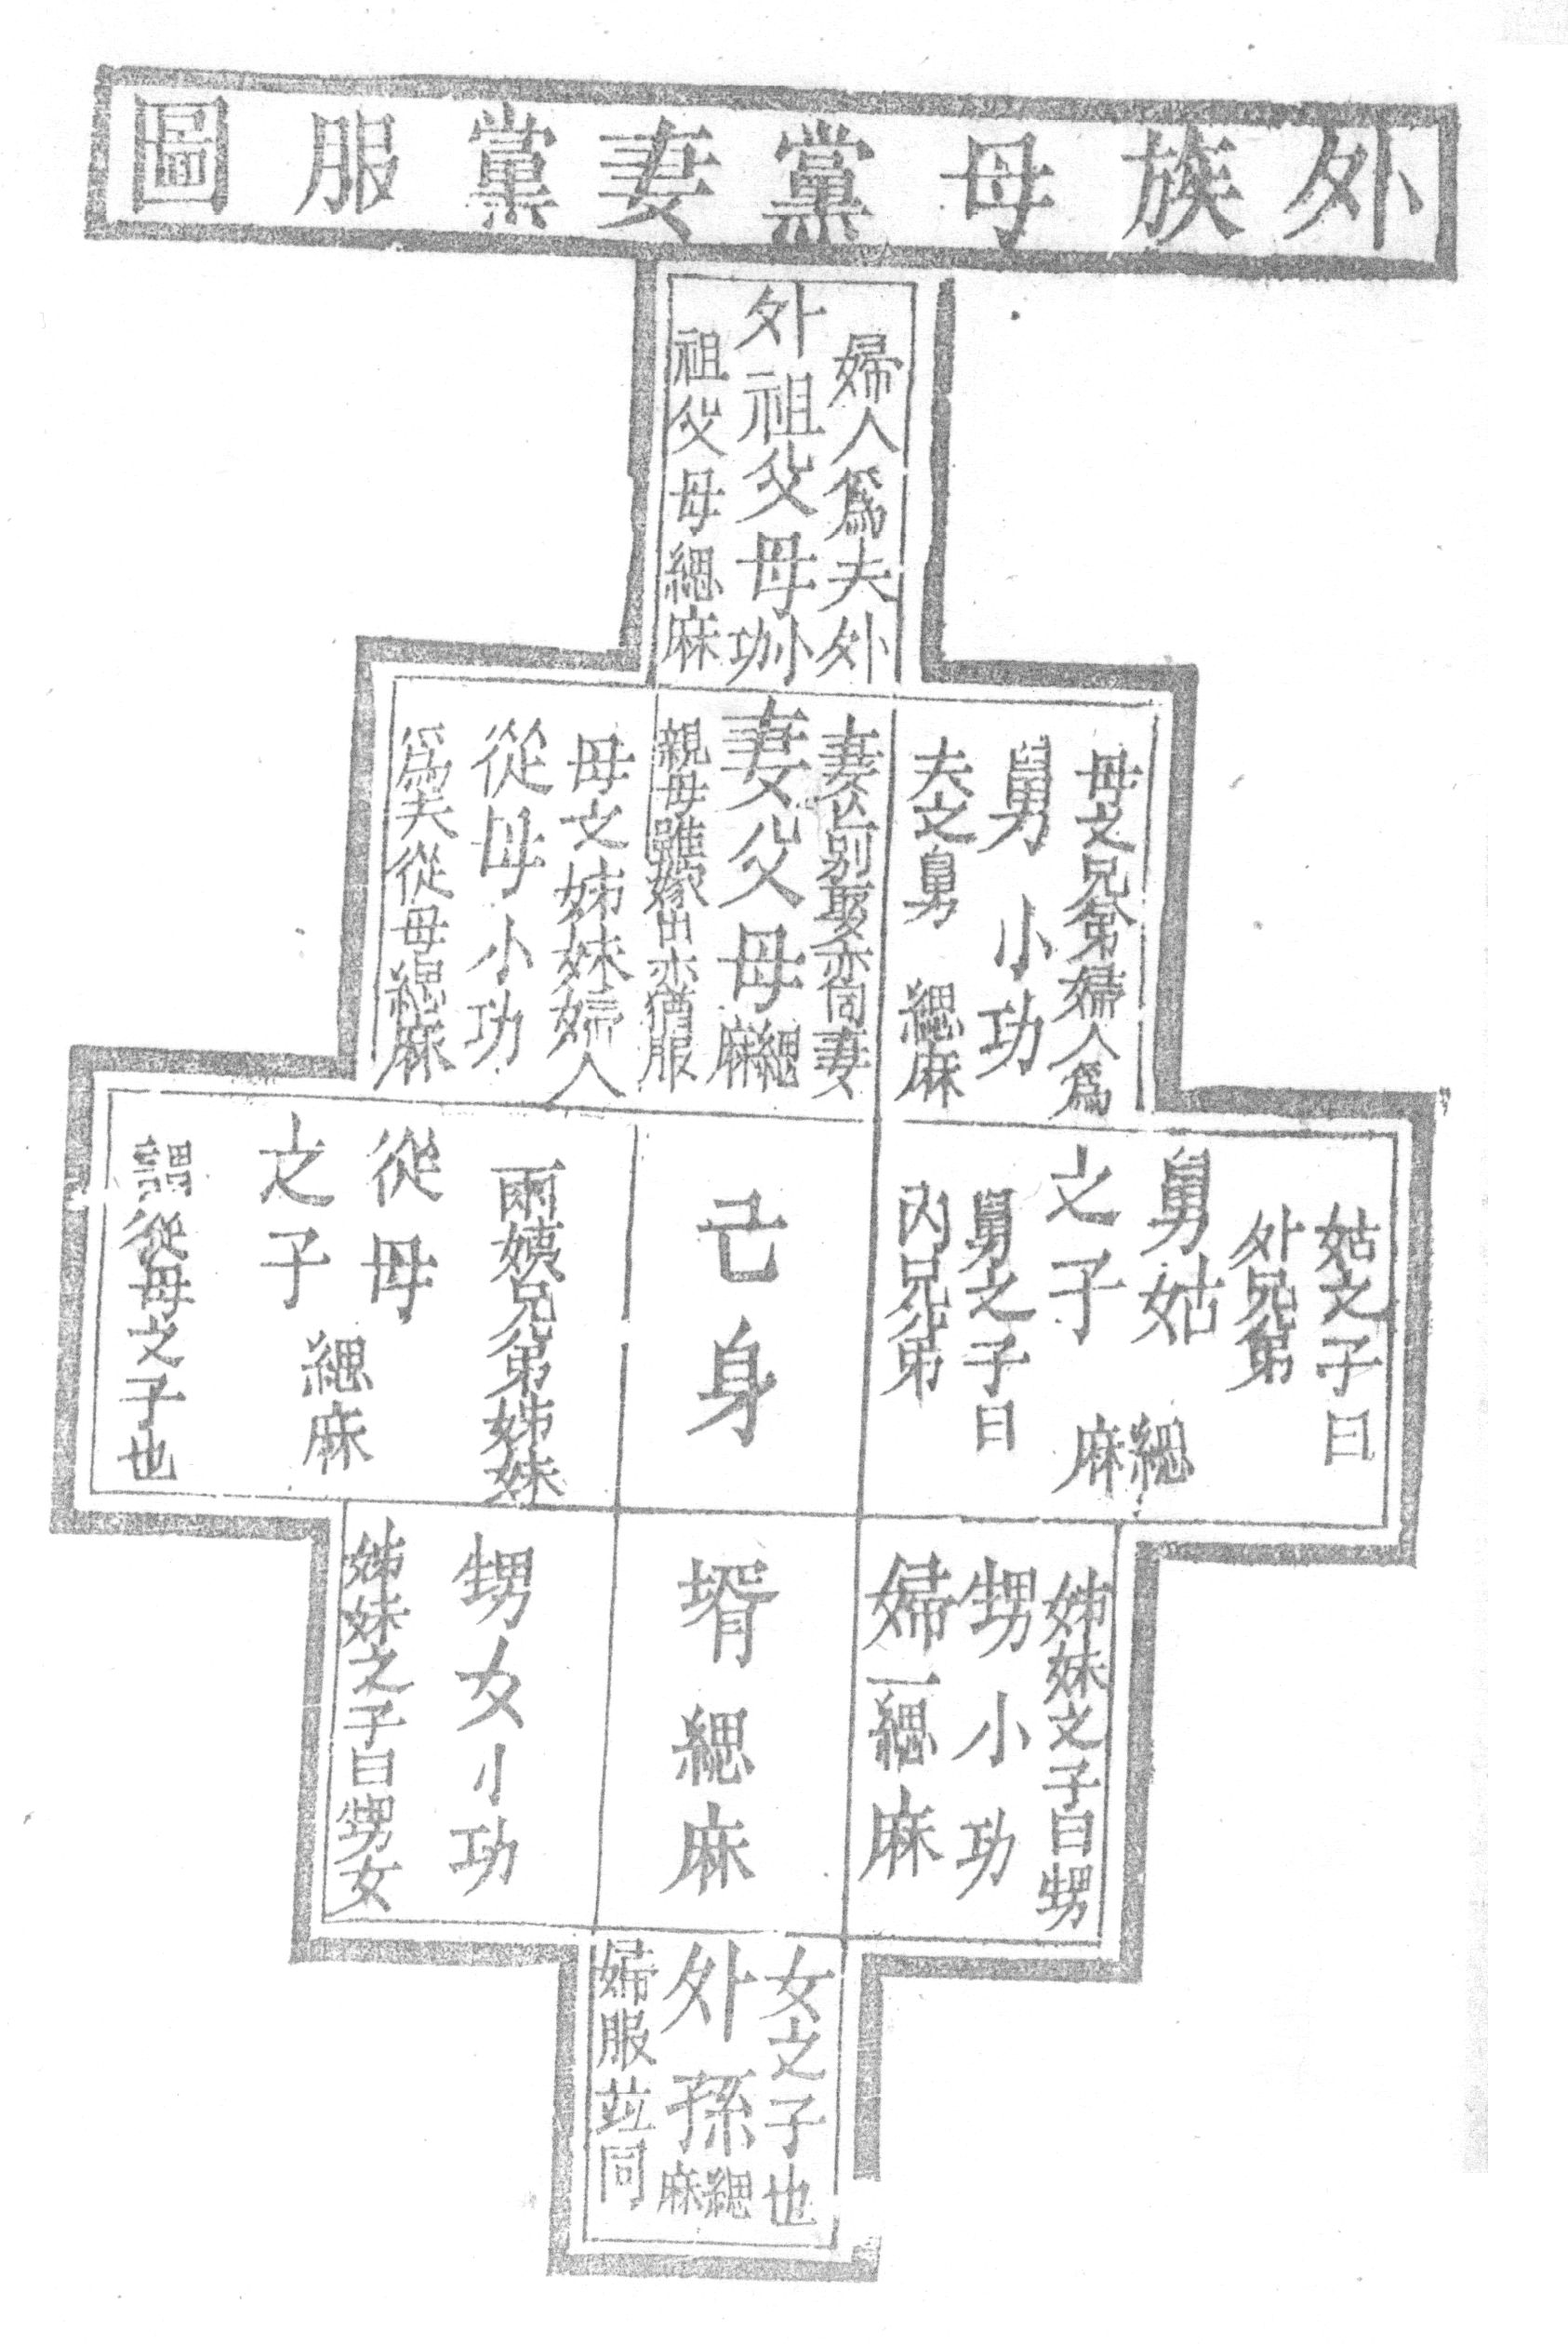 外族母黨妻黨服圖
婦人為夫外
外祖父母小功
祖父母緦麻
母之兄弟婦人為
舅小功
夫之舅緦麻
妻亡別娶亦同妻
妻父母緦麻
親母雖嫁出亦猶服
母之姊妹婦人
從母小功
為夫從母緦麻
姑之子曰
外兄弟
舅姑
之子緦麻
舅之子曰
內兄弟
己身
兩姨兄弟姊妹
從母
之子
緦麻
謂從母之子也
姊妹之子曰甥
甥小功
婦緦麻
壻緦麻
甥女小功
姊妹之子曰甥女
女之子也
外孫緦麻
婦服竝同